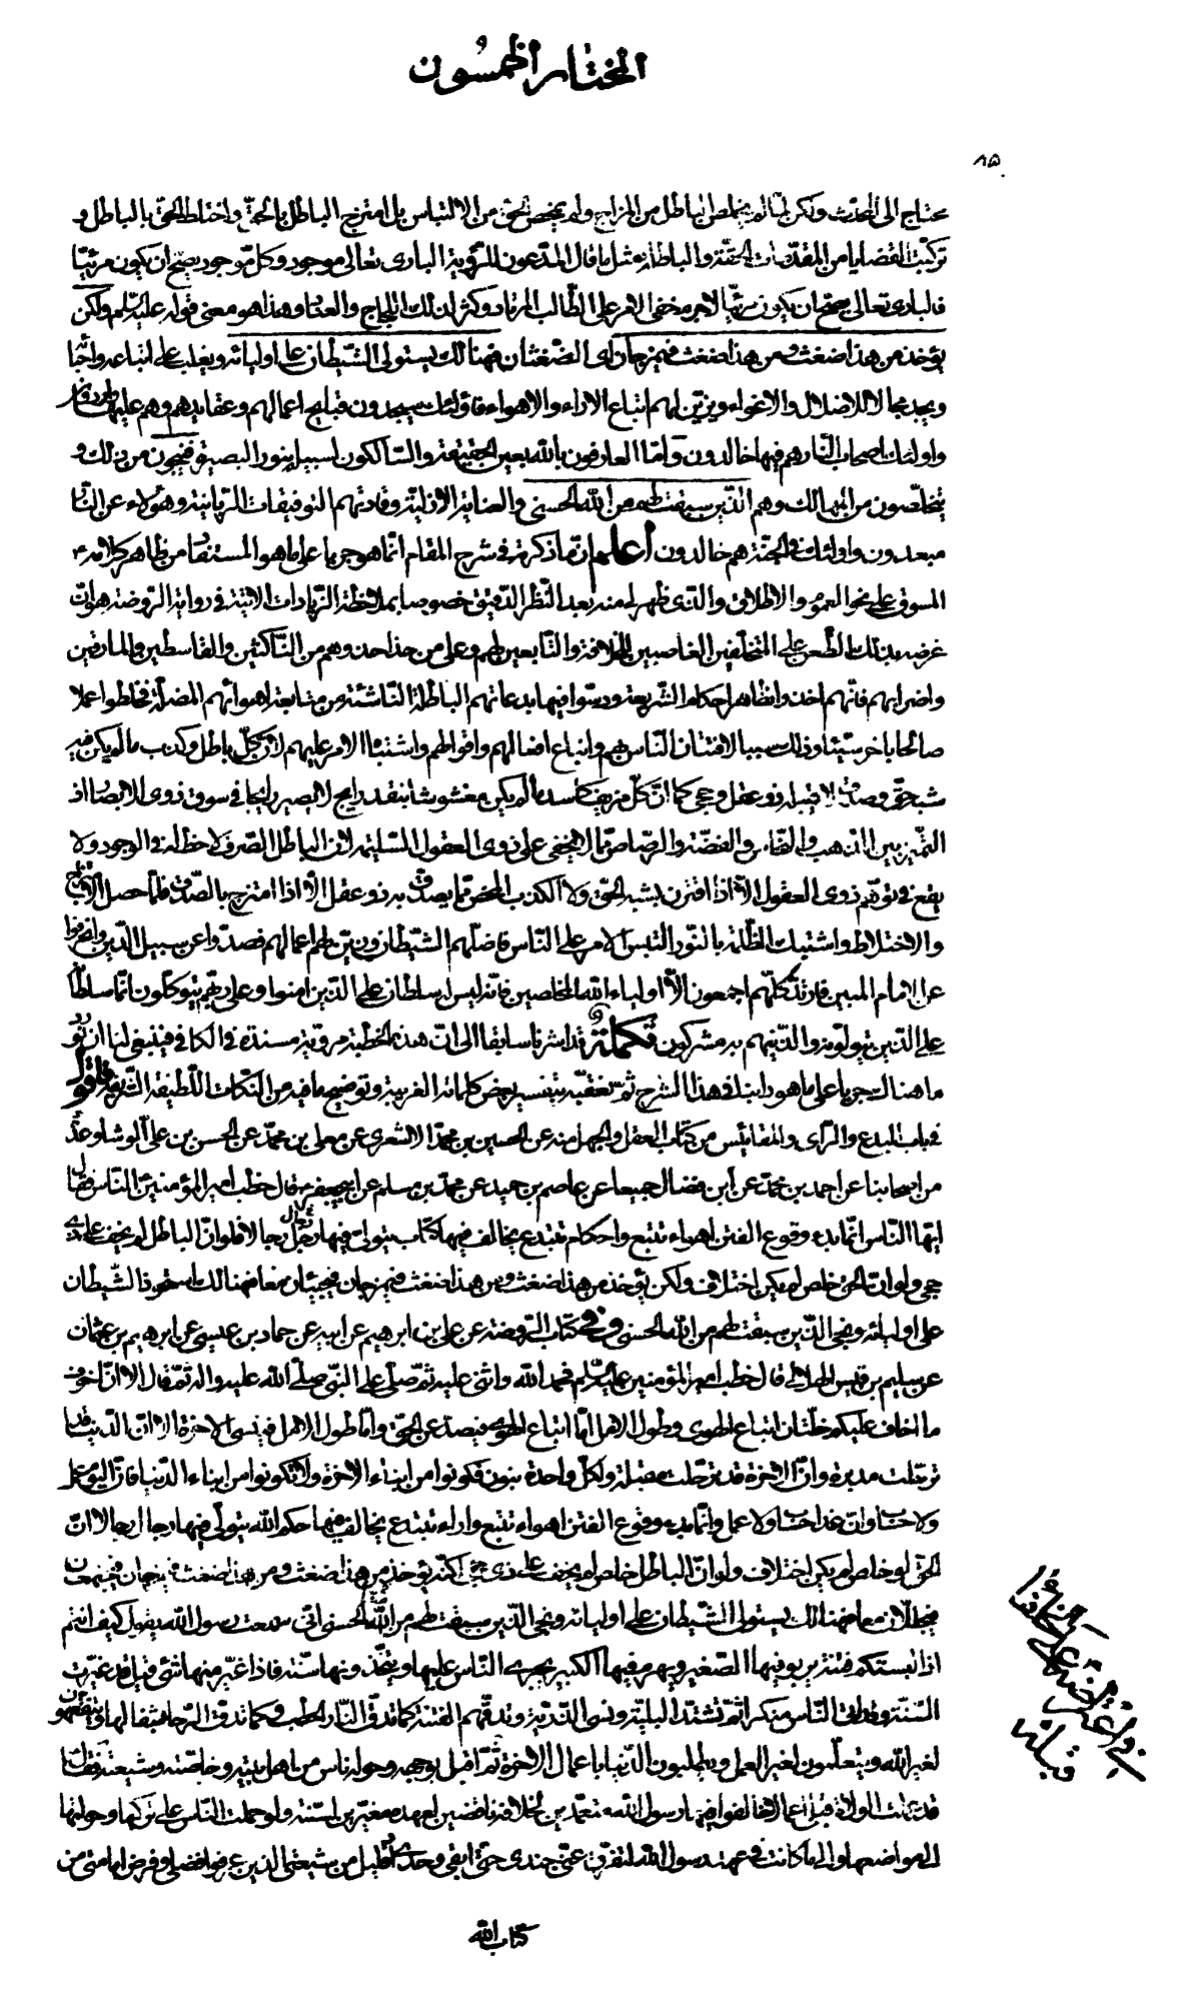 المختار الخمسون
٨٥
يحتاج الى الحدث ولكن لما لم يخلص الباطل من المزاج ولم يمحض الحق من الالتباس بل امتزج الباطل بالحق واختلط الحق بالباطل و
تركبت القضايا من المقدمات الحقة والباطلة مثل ما قال المدعون للرؤية البارى تعالى موجود وكل موجود يصح ان يكون مرئيا
فالبارى تعالى يصح ان يكون مرئيا لاجرم خفى الامر على الطالب المرتاد وكثر لذلك اللجاج والعناد وهذا هو معنى قوله عليه السلم ولكن
يؤخذ من هذا ضغث ومن هذا ضغث فيمزجان اى الضغثان فهنالك يستولى الشيطان على اوليائه ويغلب على اتباعه واحبائه
ويجد مجالا للاضلال والاغواء ويزين لهم اتباع الاراء والاهواء فاولئك سيجدون قبايح اعمالهم وعقايدهم وهم عليها واردون
واولئك اصحاب النار هم فيها خالدون واما العارفون بالله بعين الحقيقة والسالكون لسبيله بنور البصيرة فينجون من ذلك و
يتخلصون من المهالك وهم الذين سبقت لهم من الله الحسنى والعناية الازلية وقادتهم التوفيقات الربانية وهؤلاء عن النار
مبعدون واولئك فى الجنة هم خالدون اعلم ان ما ذكرته فى شرح المقام انما هو جريا على ما هو المستفاد من ظاهر كلامه ع
المسوق على نحو العموم والاطلاق والذى ظهر لى منه بعد النظر الدقيق خصوصا بملاحظة الزيادات الاتية فى رواية الروضة هو ان
غرضه بذلك الطعن على المتخلفين الغاصبين للخلافة والتابعين لهم وعلى من حذا حذوهم من الناكثين والقاسطين والمارقين
واضرابهم فانهم اخذوا ظاهر احكام الشريعة ودسوا فيها بدعاتهم الباطلة الناشئة من متابعة اهوائهم المضلة فخلطوا عملا
صالحا باخر سيئا وذلك سببا لافتتان الناس بهم واتباع افعالهم واقوالهم واشتباه الامر عليهم لان كل باطل وكذب ما لم يكن فيه
شبه حق وصدق لا يقبله ذو عقل وحجى كما ان كل مزيف كاسد ما لم يكن مغشوشا بنقد رايج لا يصير رايجا فى سوق ذوى الابصار اذ
التميز بين الذهب والنحاس والفضة والرصاص مما لا يخفى على ذوى العقول السليمة لان الباطل الصرف لا حظ له فى الوجود ولا
يقع فى توهم ذوى العقول الا اذا اقترن بشبه الحق ولا الكذب المحض مما يصدق به ذو عقل الا اذا امتزج بالصدق فلما حصل الامتزاج
والاختلاط واشتبك الظلمة بالنور التبس الامر على الناس فاضلهم الشيطان وزين لهم اعمالهم فصدوا عن سبيل الدين وانحرفوا
عن الامام المبين فارتد كلهم اجمعون الا اولياء الله المخلصين فانه ليس له سلطان على الذين امنوا وعلى ربهم يتوكلون انما سلطانه
على الذين يتولونه والذينهم به مشركون تكملة قد اشرنا سابقا الى ان هذه الخطبة مروية مسندة فى الكافى فينبغى لنا ان نورد
ما هناك جريا على ما هو دابنا فى هذا الشرح ثم نعقبه بتفسير بعض كلماته الغريبة وتوضيح ما فيه من النكات اللطيفة الشريفة فاقول
فى باب البدع والراى والمقائيس من كتاب العقل والجهل منه عن الحسين بن محمد الاشعرى عن معلى بن محمد عن الحسن بن على الوشا وعدة
من اصحابنا عن احمد بن محمد عن ابن فضال جميعا عن عاصم بن حميد عن محمد بن مسلم عن ابى جعفر ع قال خطب امير المؤمنين ع الناس فقال
ايها الناس انما بدء وقوع الفتن اهواء تتبع واحكام تبتدع يخالف فيها كتاب الله يتولى فيها رجال رجالا فلو ان الباطل لم يخف على ذى
حجى ولو ان الحق خلص لم يكن اختلاف ولكن يؤخذ من هذا ضغث ومن هذا ضغث فيمزجان فيجيئان معا فهنالك استحوذ الشيطان
على اوليائه ونجى الذين سبقت لهم من الله الحسنى وفى كتاب الروضة عن على بن ابرهيم عن ابيه عن حماد بن عيسى عن ابرهيم بن عثمان
عن سليم بن قيس الهلالى قال خطب امير المؤمنين عليه السلم فحمد الله واثنى عليه ثم صلى على النبى صلى الله عليه واله ثم قال الا ان اخوف
ما اخاف عليكم خلتان اتباع الهوى وطول الامل اما اتباع الهوى فيصد عن الحق واما طول الامل فينسى الاخرة الا ان الدنيا قد
ترحلت مدبرة وان الاخرة قد ترحلت مقبلة ولكل واحدة بنون فكونوا من ابناء الاخرة ولا تكونوا من ابناء الدنيا فان اليوم عمل
ولا حساب وان غدا حساب ولا عمل وانما بدء وقوع الفتن اهواء تتبع واراء تبتدع يخالف فيها حكم الله يتولى فيها رجال رجالا الا ان
الحق لو خلص لم يكن اختلاف ولو ان الباطل خلص لم يخف على ذى حجى لكنه يؤخذ من هذا ضغث ومن هذا ضغث فيمزجان فيجتمعان
فيجللان معا فهنالك يستولى الشيطان على اوليائه ونجى الذين سبقت لهم من الله الحسنى انى سمعت رسول الله يقول كيف انتم
اذا لبستكم فتنة يربو فيها الصغير ويهرم فيها الكبير يجرى الناس عليها ويتخذونها سنة فاذا غير منها شئ قيل قد غيرت
السنة وقد اتى الناس منكرا ثم تشتد البلية وتسبى الذرية وتدقهم الفتنة كما تدق النار الحطب وكما تدق الرحا بثفالها ويتفقهون
لغير الله ويتعلمون لغير العمل ويطلبون الدنيا باعمال الاخرة ثم اقبل بوجهه وحوله ناس من اهل بيته وخاصته وشيعته فقال
قد عملت الولاة قبلى اعمالا خالفوا فيها رسول الله متعمدين لخلافه ناقضين لعهده مغيرين لسنته ولو حملت الناس على تركها وحولتها
الى مواضعها والى ما كانت فى عهد رسول الله لتفرق عنى جندى حتى ابقى وحدى او قليل من شيعتى الذين عرفوا فضلى وفرض امامتى من
كتاب الله